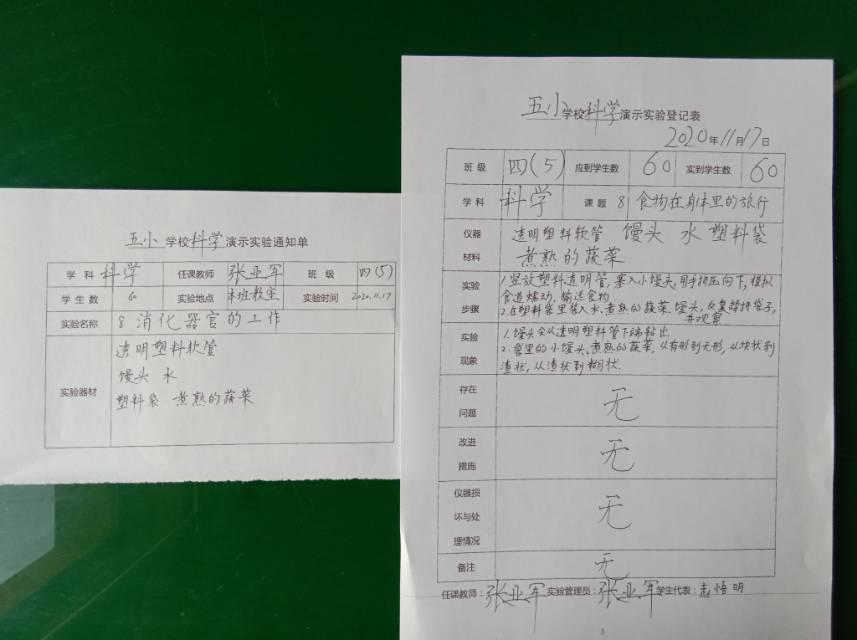 五小学校科学演示实验通知单
学科 科学 任课教师 张亚军 班级 四(5)
学生数 60 实验地点 本班教室 实验时间 2020.11.17
实验名称 8 消化器官的工作
实验器材
透明塑料软管
馒头 水
塑料袋 煮熟的蔬菜
五小学校科学演示实验登记表
2020年11月17日
班级 四(5) 应到学生数 60 实到学生数 60
学科 科学 课题 8 食物在身体里的旅行
仪器材料 透明塑料软管 馒头 水 塑料袋
煮熟的蔬菜
实验步骤 1.竖放塑料透明管,塞入小馒头,用手挤压向下,模拟
食道蠕动,输送食物
2.在塑料袋里装入水,煮熟的蔬菜,馒头,反复揉挤袋子,
并观察
实验现象 1.馒头会从透明塑料管下端钻出
2.袋里的小馒头,煮熟的蔬菜,从有形到无形,从块状到
渣状,从渣状到糊状.
存在问题 无
改进措施 无
仪器损坏与处理情况 无
备注 无
任课教师:张亚军 实验管理员:张亚军 学生代表:赵悟明